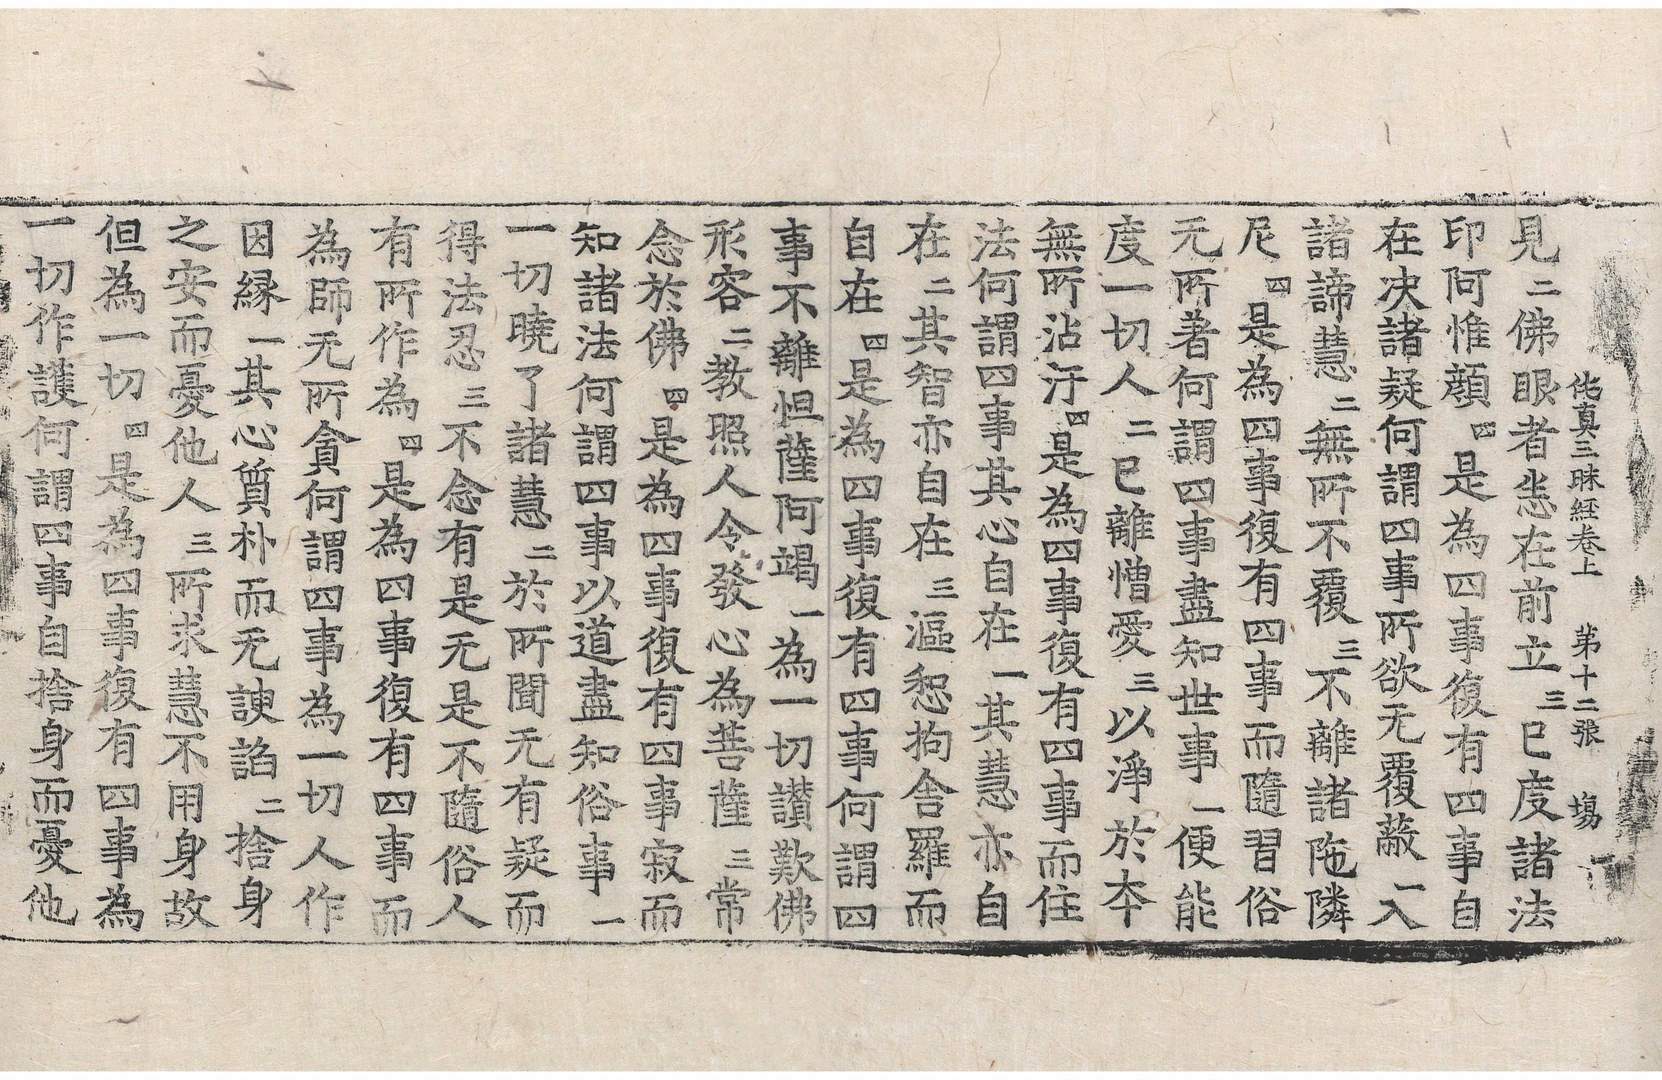 伅真三昧経卷上　第十二張　塲
見二佛眼者悉在前立三已度諸法
印阿惟顔四是為四事復有四事自
在决諸疑何謂四事所欲无覆蔽一入
諸諦慧二無所不覆三不離諸陁隣
尼四是為四事復有四事而隨習俗
无所著何謂四事盡知世事一便能
度一切人二已離憎愛三以淨於本
無所沾汙四是為四事復有四事而住
法何謂四事其心自在一其慧亦自
在二其智亦自在三漚惒拘舍羅而
自在四是為四事復有四事何謂四
事不離怛薩阿竭一為一切讃歎佛
形容二教照人令發心為菩薩三常
念於佛四是為四事復有四事寂而
知諸法何謂四事以道盡知俗事一
一切曉了諸慧二於所聞无有疑而
得法忍三不念有是无是不隨俗人
有所作為四是為四事復有四事而
為師无所貪何謂四事為一切人作
因縁一其心質朴而无諛諂二捨身
之安而憂他人三所求慧不用身故
但為一切四是為四事復有四事為
一切作護何謂四事自捨身而憂他